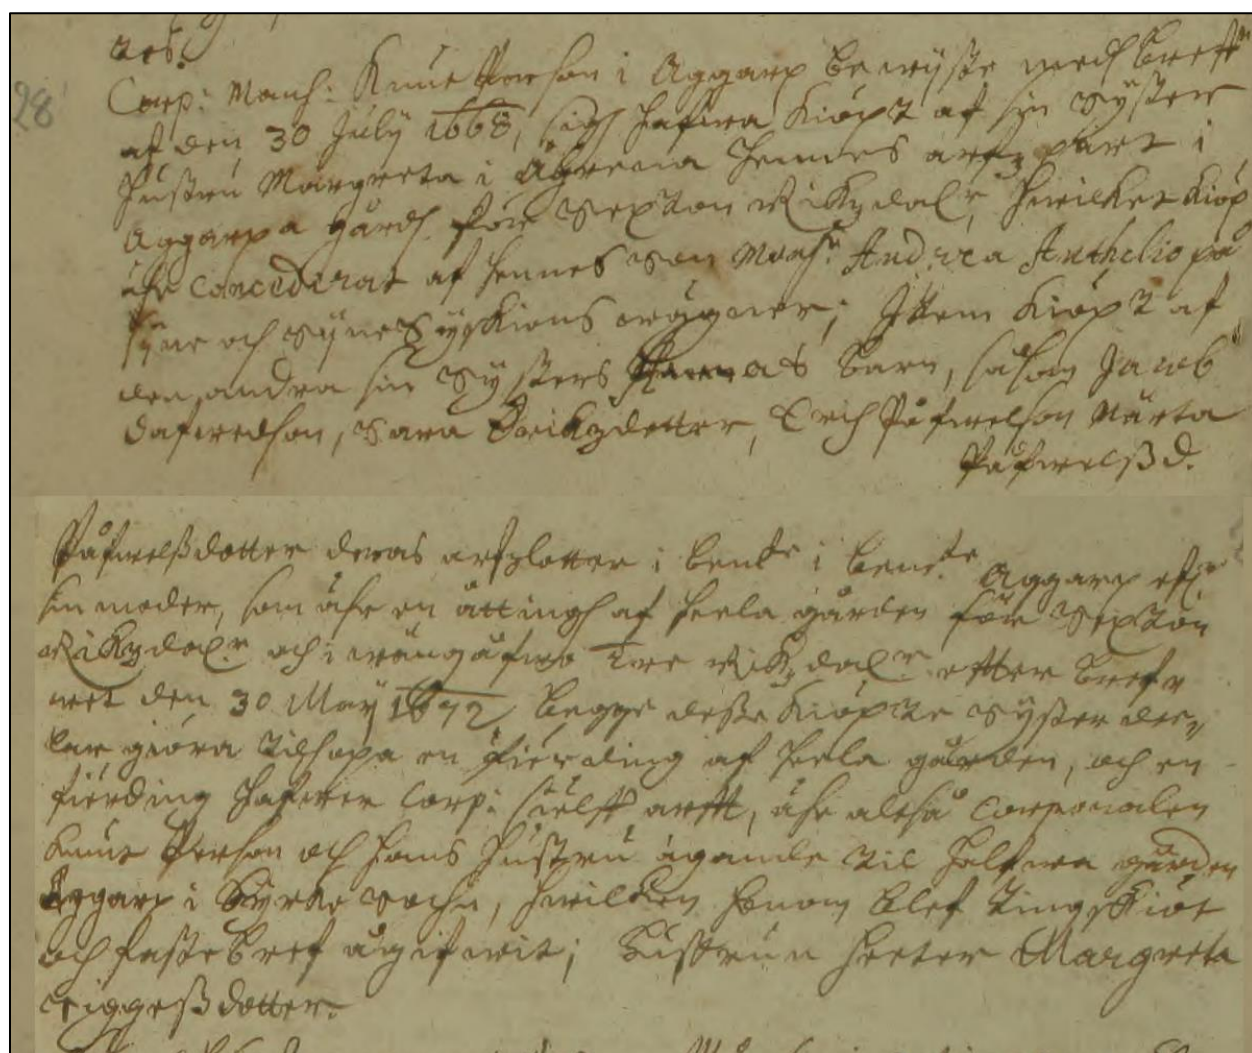 28
Corp: Mons: Knut Person i Aggarp bewijste medh breff
af den 30 Julij 1668, sigh hafwa kiöpt af sin Syster
hustru Margreta i Ågrena hennes arfz part i
Aggarpa gård för Sexton Rikzdalr, hwilket kiöp
ähr concederat af hennes Son Mons: Andrea Anthelio på
syne och syne Syskions wägner; Item kiöpt af
den andra sin Systers barn, såsom Jacob
dafwedson, Sara Erikzdotter, Erich Påfwelson Märta
Påfwelßd.
Påfwelßdotter deras arfzlotter i bente i bente Aggarp eft
sin moder, som ähr en åttingh af heela gården för Sexton
Rikzdalr och i wängåfwo Tree Rikzdalr effter brefz
wet den 30 Maij 1672, begge desse kiöpte Syster dee
lar giöra tilhopa en fierding af heela gården, och en
fierding hafwer Corp: sielff arfft, ähr altså Corporalen
Knut Person och hans hustru ägande til halfwa gården
Aggarp i Kyrke Sochn, hwilken honom blef Tingskiöt
och fastebref ugifwit; hustrun heeter Margreta
Siggeßdotter.